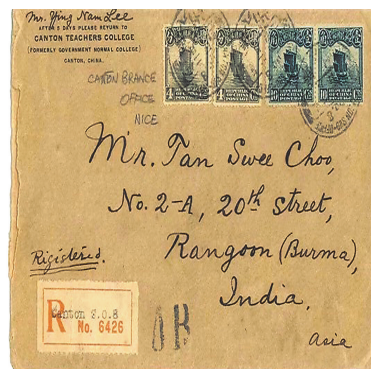 Mr. Ying Nam Lee
AFTER 5 DAYS PLEASE RETURN TO
CANTON TEACHERS COLLEGE
(FORMERLY GOVERNMENT NORMAL COLLEGE)
CANTON, CHINA.
CANTON BRANCE
OFFICE
NICE
4 4 10 10
Mr. Tan Swee Choo,
No. 2-A, 20th street,
Rangoon (Burma),
India,
Asia
Rigistered.
R
Canton S.O.8
No. 6426